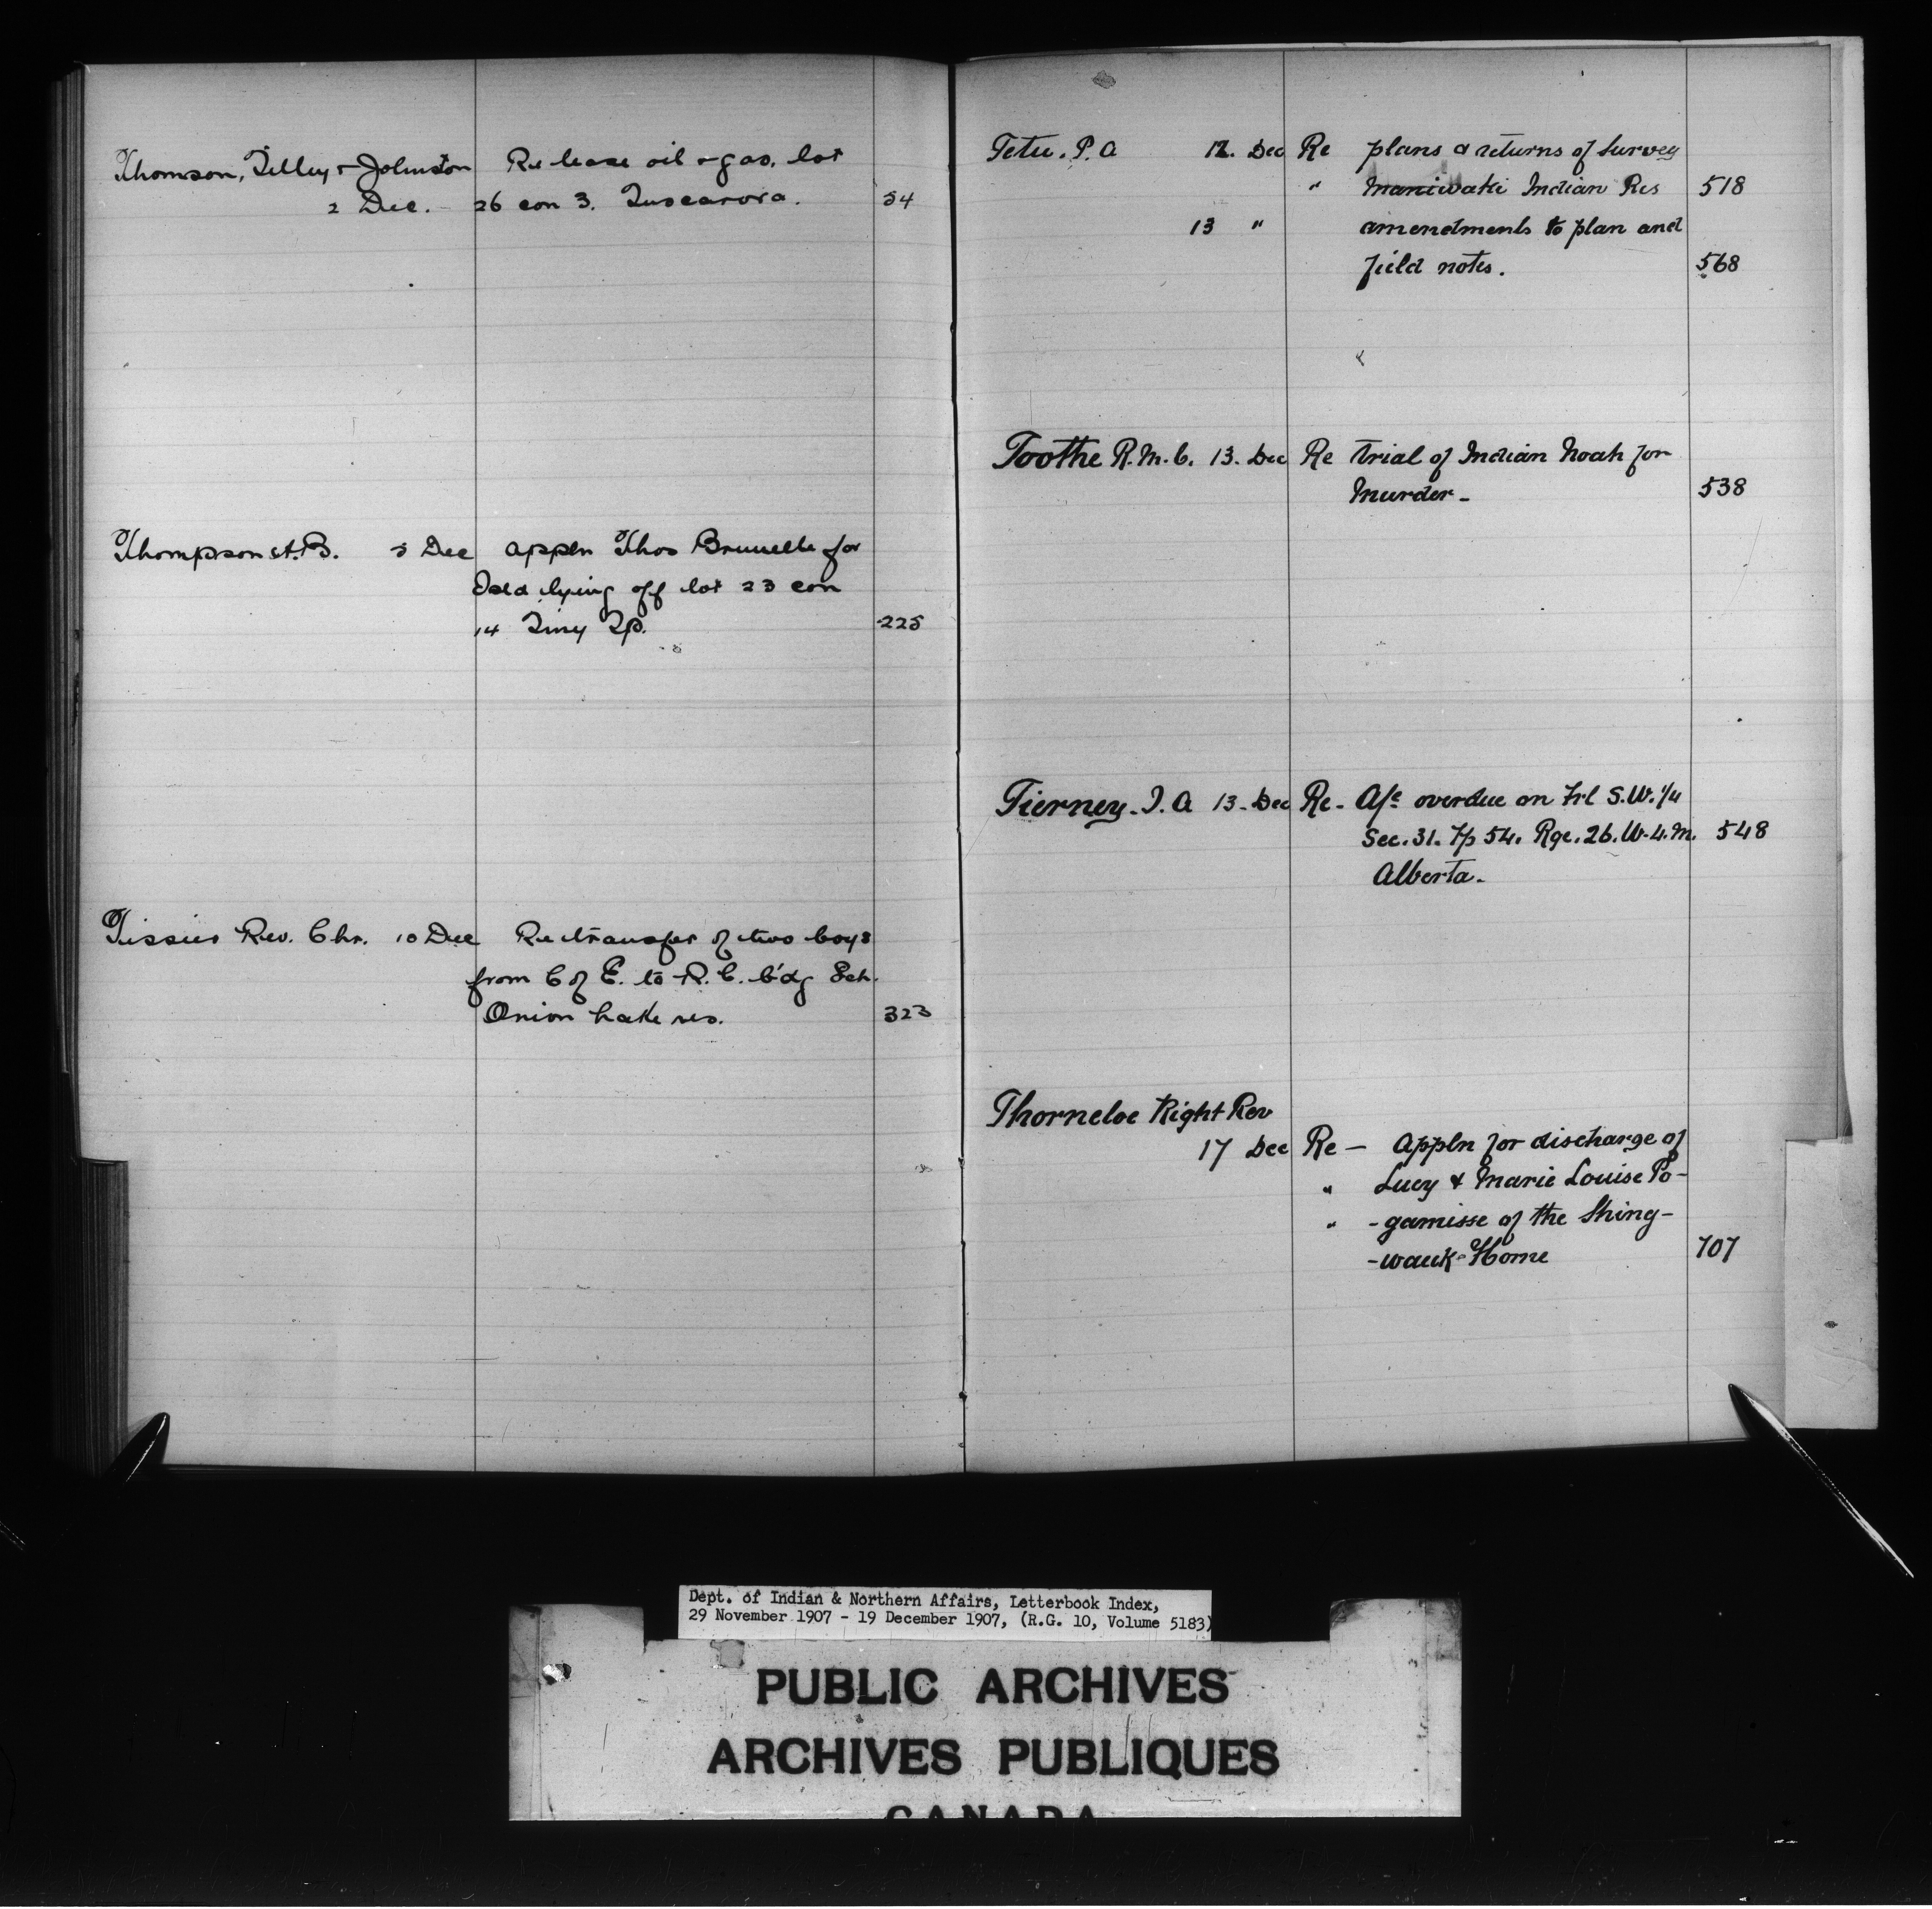 Thomson, Tilley & Johnston Re lease oil & gas, lot
2 Dec. 26 con 3. Tuscarora. 54
Thompson A.B. 5 Dec Appln Thos Brunelle for
Isld lying off lot 23 con
14 Tiny Tp. 225
Tissier Rev. Chr. 10 Dec Re transfer of two boys
from C of E. to R.C. b'dg Sch.
Onion Lake res. 323
Tetu. P. A 12. Dec Re plans & returns of Survey
" Maniwaki Indian Res 518
13 " amendments to plan and
field notes. 568
Toothe R.M.C. 13. Dec Re trial of Indian Noah for
Murder- 538
Tierney. J. A 13- Dec Re- A/c overdue on Frl S.W. 1/4
Sec. 31. Tp 54. Rge. 26. W. 4. M. 548
Alberta-
Thorneloe Right Rev
17 Dec Re — Appln for discharge of
" Lucy & Marie Louise Po-
" -gamisse of the Shing-
-wauk-Home 707
Dept. of Indian & Northern Affairs, Letterbook Index,
29 November 1907 - 19 December 1907, (R.G. 10, Volume 5183)
PUBLIC ARCHIVES
ARCHIVES PUBLIQUES
CANADA